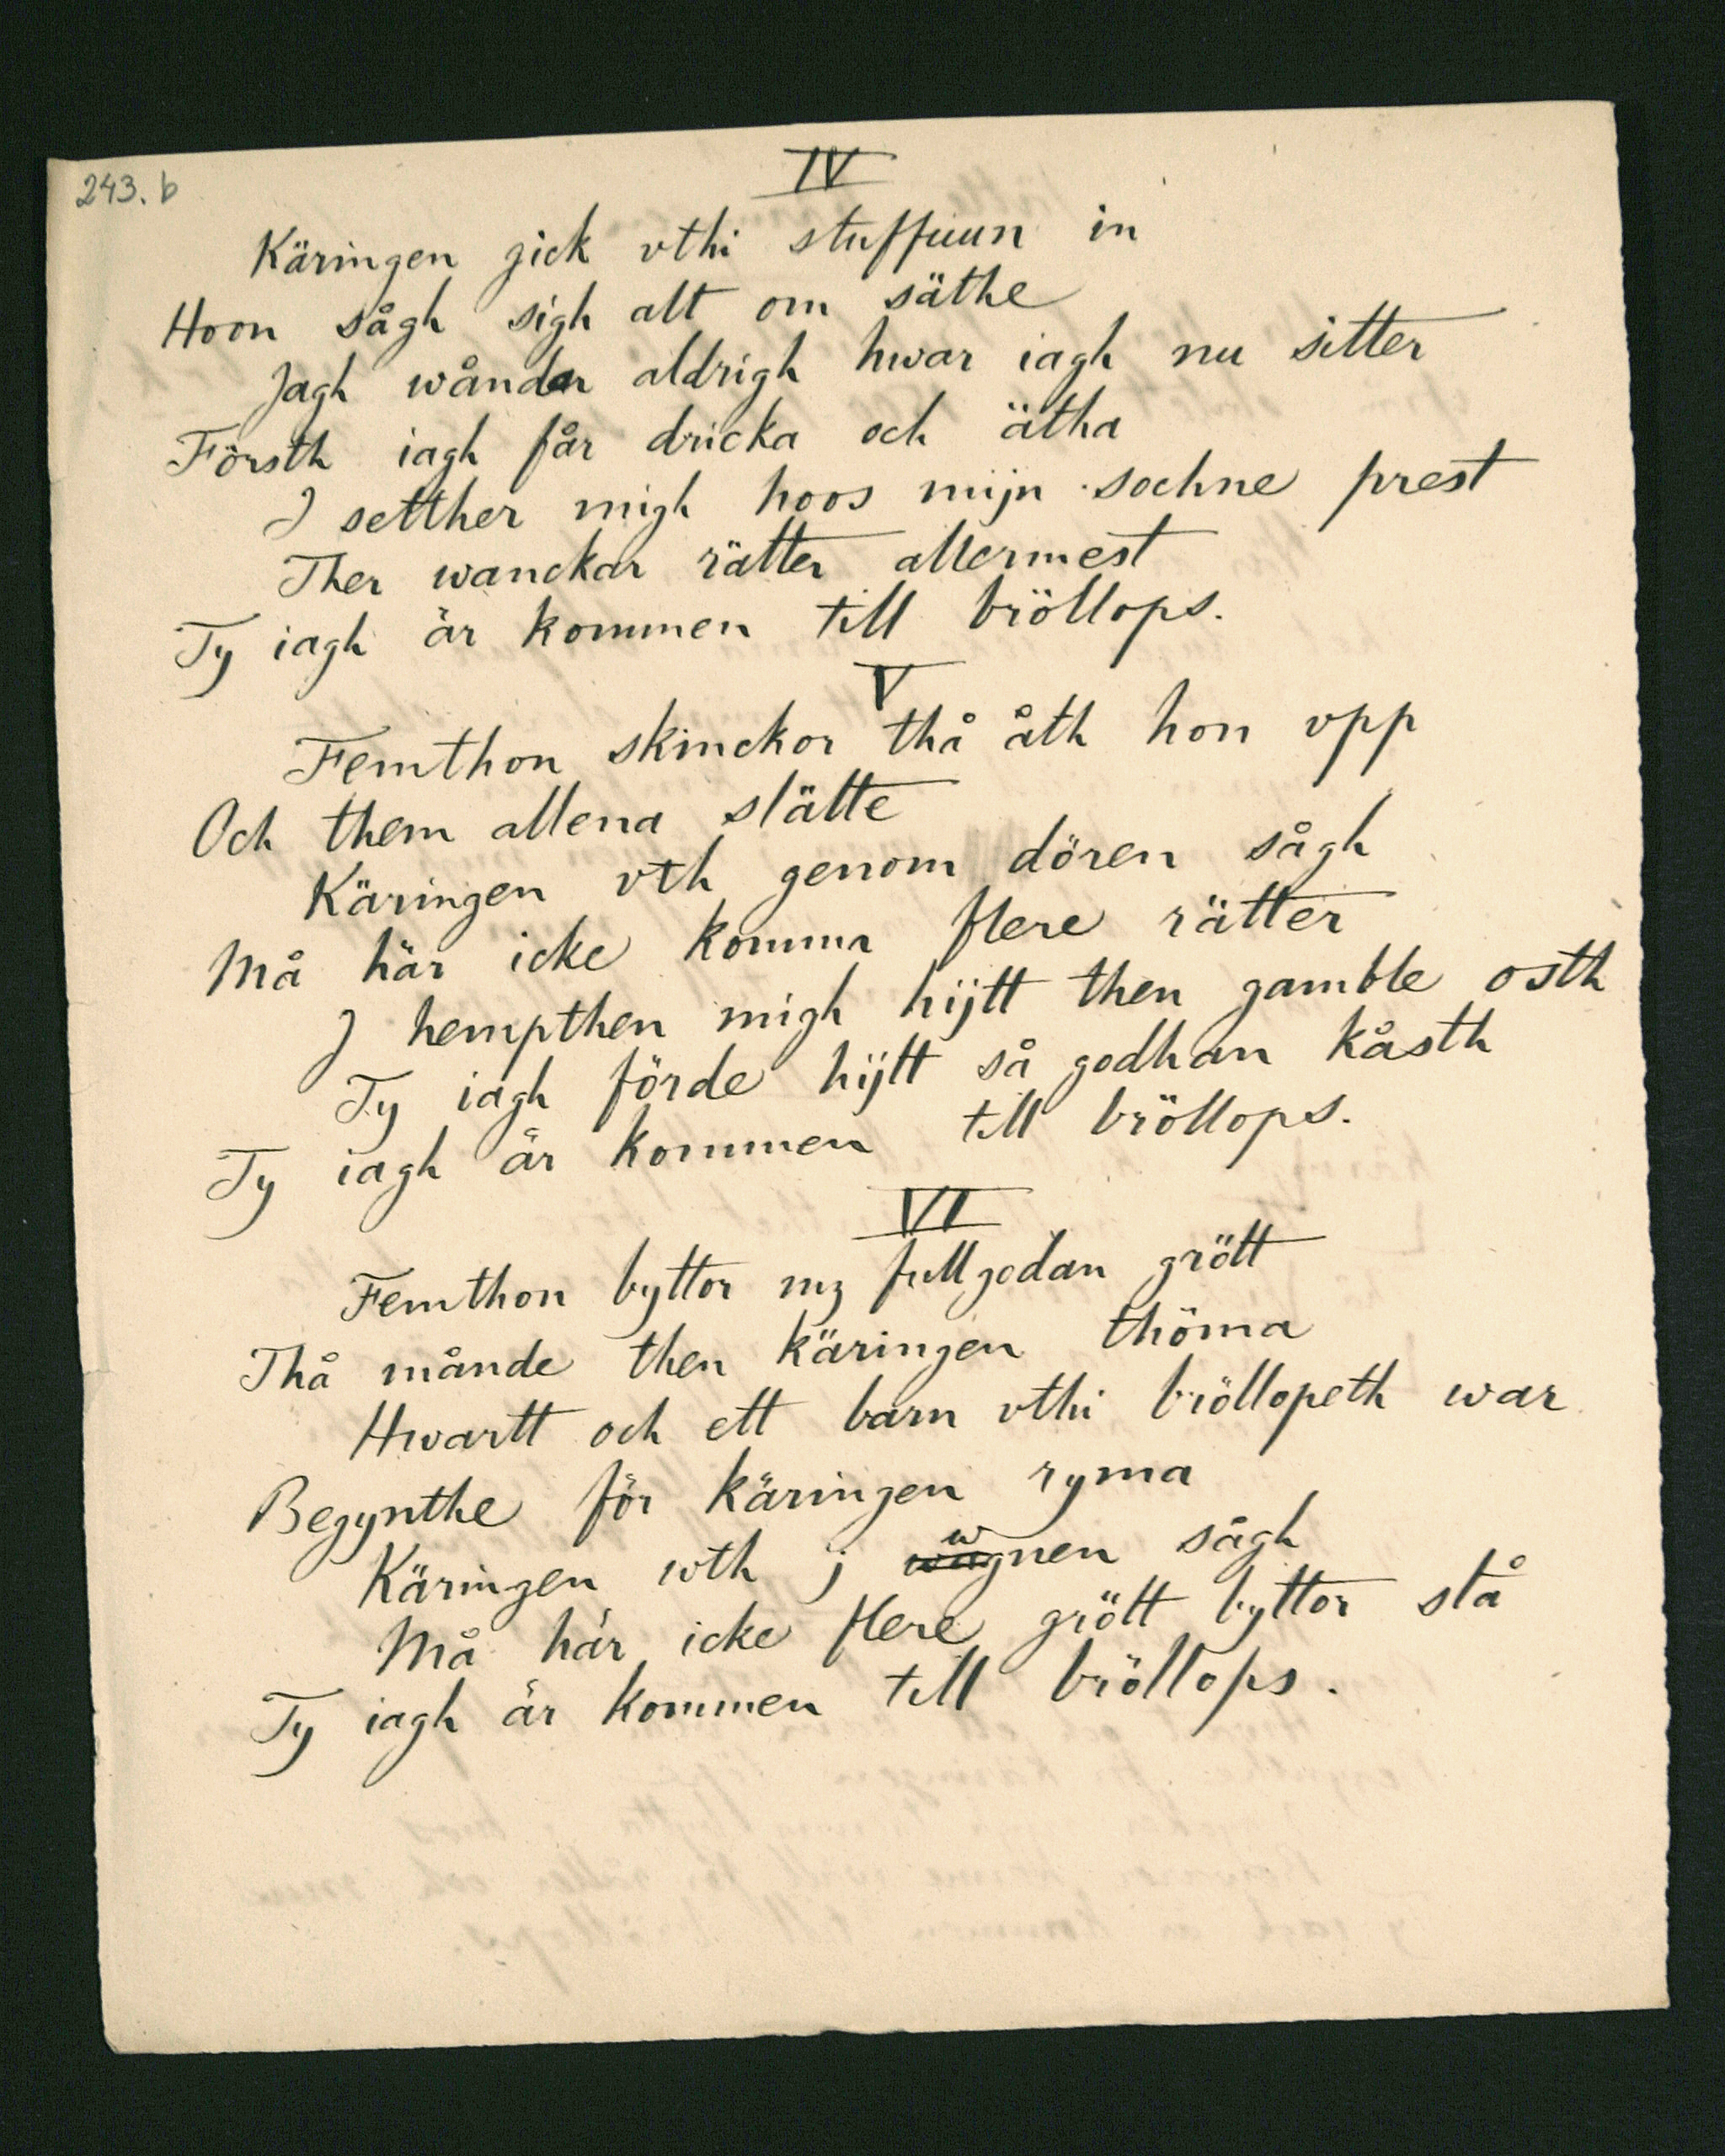 243.b
IV
Käringen gick vthi stuffuun in
Hoon sågh sigh alt om säthe
Jagh wånder aldrigh hwar iagh nu sitter
Försth iagh får dricka och ätha
I setther migh hoos mijn sochne prest
Ther wanckar rätter allermest
Ty iagh är kommen till bröllops.
V
Femthon skinckor thå åth hon vpp
Och them allena slätte
Käringen vth genom dören sågh
Må här icke komma flere rätter
J hempthen migh hijtt then gamble osth
Ty iagh förde hijtt så godhan kåsth
Ty iagh är kommen till bröllops.
VI
Femthon byttor mz full godan grött
Thå månde then käringen thöma
Hwartt och ett barn vthi bröllopeth war
Begynthe för käringen ryma
Käringen wth j wgnen sågh
Må här icke flere grött byttor stå
Ty iagh är kommen till bröllops.